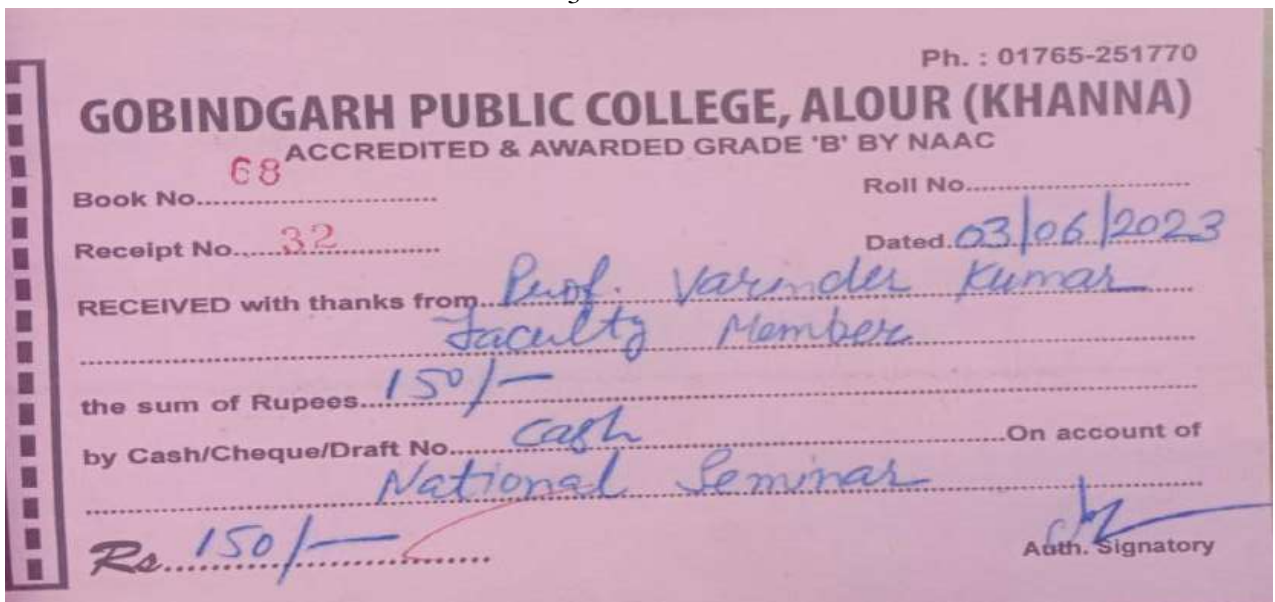 Ph. : 01765-251770
GOBINDGARH PUBLIC COLLEGE, ALOUR (KHANNA)
ACCREDITED & AWARDED GRADE 'B' BY NAAC
Book No. 68 Roll No.
Receipt No. 32 Dated. 03/06/2023
RECEIVED with thanks from Prof. Varinder Kumar
Faculty Member
the sum of Rupees 150/-
by Cash/Cheque/Draft No. Cash On account of
National Seminar
Rs. 150/- Auth. Signatory